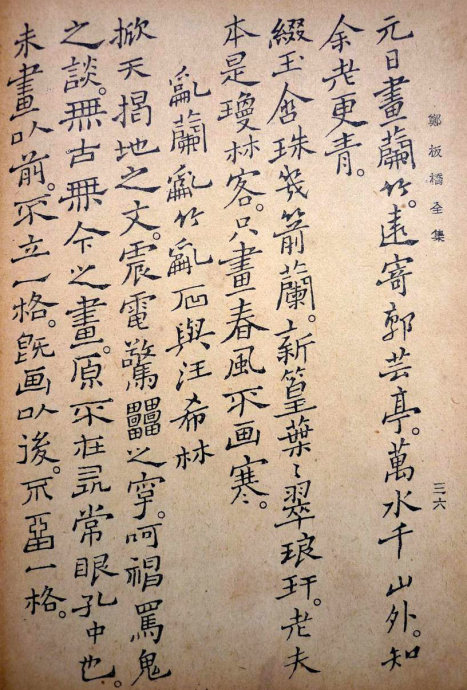 鄭板橋全集
三六
元日畫蘭竹。遠寄郭芸亭。萬水千山外。知
余老更青。
綴玉含珠幾箭蘭。新篁葉〻翠琅玕。老夫
本是瓊林客。只畫春風不画寒。
亂蘭亂竹亂石與汪希林
掀天揭地之文。震電驚靁之字。呵神罵鬼
之談。無古無今之畫。原不在尋常眼孔中也。
未畫以前。不立一格。既画以後。不畱一格。